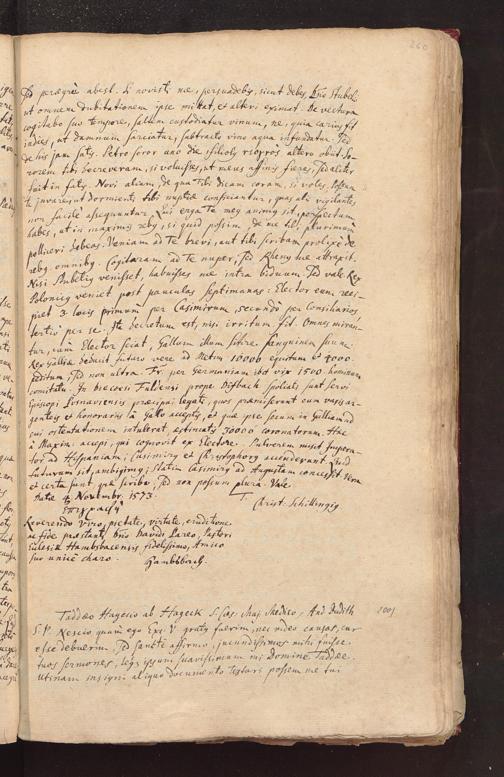 260
peregre abest. Si novisti me, persuadebis, sicut debes, Dno Stubelio
ut omnem dubitationem ipse mittat, et alteri eximat. De vectura
cogitabo suo tempore, saltem custodiatur vinum, ne, quia carius fit
indies, ut damnum sarciatur, subtracto vino aqua infundatur. Sed
de his jam satis. Petro soror uno die, altero obiit. So-
rorem tibi decreveram, si voluisses, ut meus affinis fieres, sed aliter
fuit in fatis. Novi aliam, de qua tibi dicam coram, si voles. Possem
te juvare, ut dormienti tibi nuptiae conficiantur, quas alii vigilantes
non facile assequuntur. Qui erga te meus animus sit, perspectum
habes, ut in maximis rebus, si quid possim, de me tibi plurimum
polliceri debeas. Veniam ad te brevi, aut tibi scribam prolixe de
rebus omnibus. Cogitaram ad te nuper, sed Rhenus me attraxit.
Nisi venisset, habuisses me intra biduum. Sed vale. Rex
Polonicus veniet post pauculas septimanas. Elector eum reci-
piet 3 locis primum per Casimirum, secundo per consiliarios,
tertio per se. Ita decretum est, nisi irritum fit. Omnes miran-
tur, cum Elector sciat, Gallum illum sitire sanguinem suum.
Rex Galliae deducit futuro vere ad Metim 10000 equitum et 4000
peditum, sed non ultra. Fr. per Germaniam ibit vix 1500 hominum
comitatu. In dioecesi Fuldensi prope spoliati sunt servi
Episcopi Posnaniensis praecipui legati, quos praemiserat cum vasis ar-
genteis et honorariis a Gallo acceptis, et quae pse secum in Galliam ad
sui ostentationem intulerat, estimatis 30000 coronatorum. Haec
a Maxim: accepi, qui cognovit ex Electore. Pulverem misit Impera-
tor ad Hispaniam; Casimirus et Christophorus accenderunt. Quid
futurum sit, ambigimus; statim Casimirus ad Augustam concessit. Vera
et certa sunt quae scribo, sed non possum plura. Vale.
Datae 9 Novembr. 1573.
T. Christ. Schillingius
Επιγραφη
Reverendo viro, pietate, virtute, eruditione
ac fide praestanti, Dno Davidi Pareo, Pastori
Eclesiae Hembsbacensis fidelissimo, Amico
suo unice charo. Hembsbach.
Taddaeo Hagecio ab Hageck S. Caes. Maj. Medico, And. Dudith 1001
S. P. Nescio quam ego Exc. V. gratus fuerim, nec video causas, cur
esse debuerim, sed sancte affirmo, jucundissimos mihi fuisse
tuos sermones, suavissimum mi Domine Taddaee.
Utinam insigni aliquo documento testari possem me tui